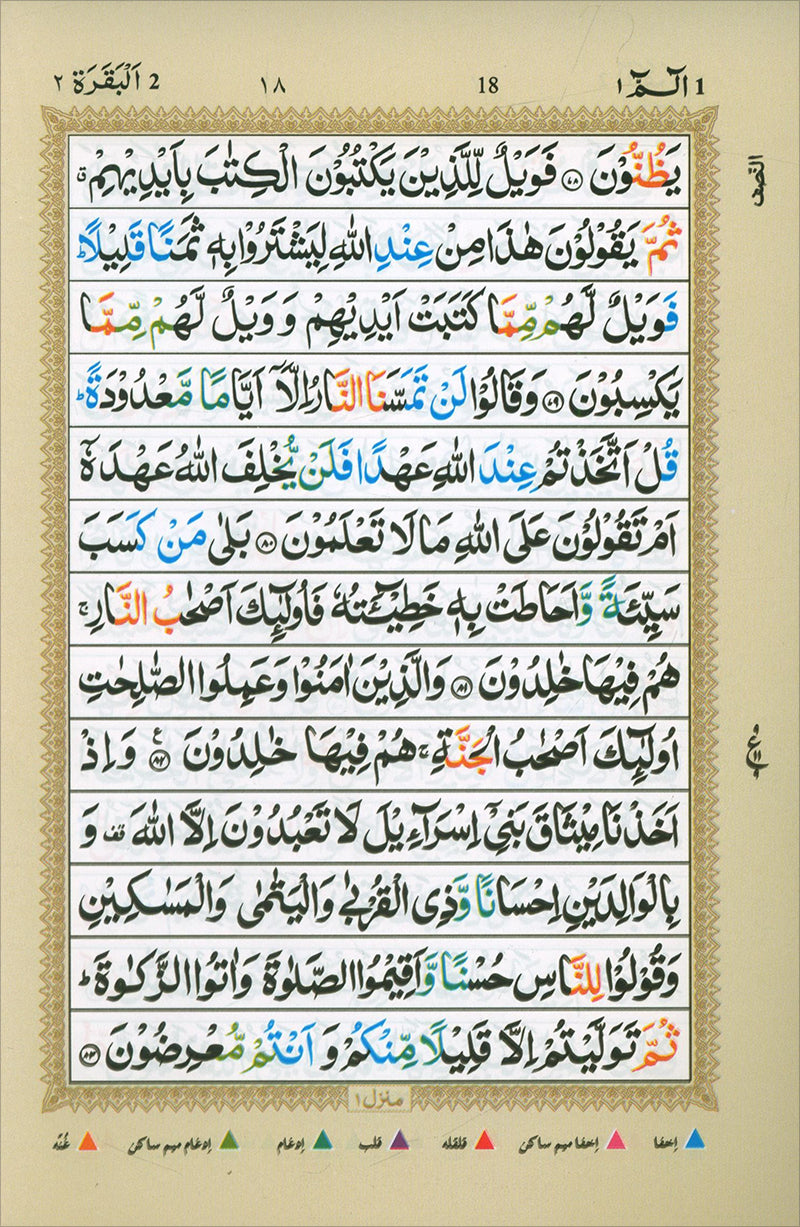 1 الٓـمّٓ ١ 18 ١٨ 2 اَلْبَقَرَة ٢
النصف
يَظُنُّوْنَ ۝٧٨ فَوَيْلٌ لِّلَّذِيْنَ يَكْتُبُوْنَ الْكِتٰبَ بِاَيْدِيْهِمْ ۗ
ثُمَّ يَقُوْلُوْنَ هٰذَا مِنْ عِنْدِ اللّٰهِ لِيَشْتَرُوْا بِهٖ ثَمَنًا قَلِيْلًا ؕ
فَوَيْلٌ لَّهُمْ مِّمَّا كَتَبَتْ اَيْدِيْهِمْ وَ وَيْلٌ لَّهُمْ مِّمَّا
يَكْسِبُوْنَ ۝٧٩ وَقَالُوْا لَنْ تَمَسَّنَا النَّارُ اِلَّاۤ اَيَّامًا مَّعْدُوْدَةً ؕ
قُلْ اَتَّخَذْتُمْ عِنْدَ اللّٰهِ عَهْدًا فَلَنْ يُّخْلِفَ اللّٰهُ عَهْدَهٗۤ
اَمْ تَقُوْلُوْنَ عَلَى اللّٰهِ مَا لَا تَعْلَمُوْنَ ۝٨٠ بَلٰى مَنْ كَسَبَ
سَيِّئَةً وَّاَحَاطَتْ بِهٖ خَطِيْٓـَٔتُهٗ فَاُولٰٓئِكَ اَصْحٰبُ النَّارِ ۚ
هُمْ فِيْهَا خٰلِدُوْنَ ۝٨١ وَالَّذِيْنَ اٰمَنُوْا وَعَمِلُوا الصّٰلِحٰتِ
اُولٰٓئِكَ اَصْحٰبُ الْجَنَّةِ ۚ هُمْ فِيْهَا خٰلِدُوْنَ ۝٨٢ ع وَاِذْ
ع ١١
اَخَذْنَا مِيْثَاقَ بَنِيْۤ اِسْرَآءِيْلَ لَا تَعْبُدُوْنَ اِلَّا اللّٰهَ قف وَ
بِالْوَالِدَيْنِ اِحْسَانًا وَّذِي الْقُرْبٰى وَالْيَتٰمٰى وَالْمَسٰكِيْنِ
وَقُوْلُوْا لِلنَّاسِ حُسْنًا وَّاَقِيْمُوا الصَّلٰوةَ وَاٰتُوا الزَّكٰوةَ ؕ
ثُمَّ تَوَلَّيْتُمْ اِلَّا قَلِيْلًا مِّنْكُمْ وَ اَنْتُمْ مُّعْرِضُوْنَ ۝٨٣
منزل ١
اِخفا اِخفا میم ساکن قلقله قلب اِدغام اِدغام میم ساکن غُنّه